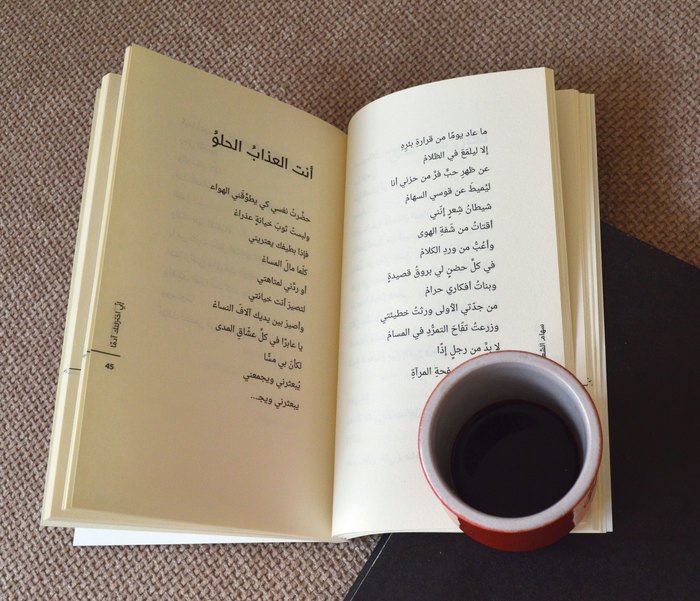 ما عاد يومًا من قرارةِ بئرِهِ
إلا ليلمَعَ في الظلامْ
عن ظهرِ حبٍّ فرَّ من حزني أنا
ليُميطَ عن قوسي السهامْ
شيطانُ شِعرٍ إنّني
أقتاتُ من شَفةِ الهوى
وأعُبُّ من وردِ الكلامْ
في كلِّ حضنٍ لي بروقُ قصيدةٍ
وبناتُ أفكاري حرامْ
من جدّتي الأولى ورثتُ خطيئتي
وزرعتُ تفّاحَ التمرُّدِ في المسامْ
لا بدَّ من رجلٍ إذًا
المرآةِ
سهام
أنت العذابُ الحلوُ
حضّرتُ نفسي كي يطوّقَني الهواء
ولبستُ ثوبَ خيانةٍ عذراءُ
فإذا بطيفك يعتريني
كلّما مالَ المساءُ
أو ردَّني لمتاهتي
لتصيرَ أنت خيانتي
وأصيرَ بين يديك آلافَ النساءْ
يا عابرًا في كلِّ عشّاقِ المدى
لكأنَ بي مسًّا
يُبعثرني ويجمعني
يبعثرني ويجـ...
إنّي آدمًا
45